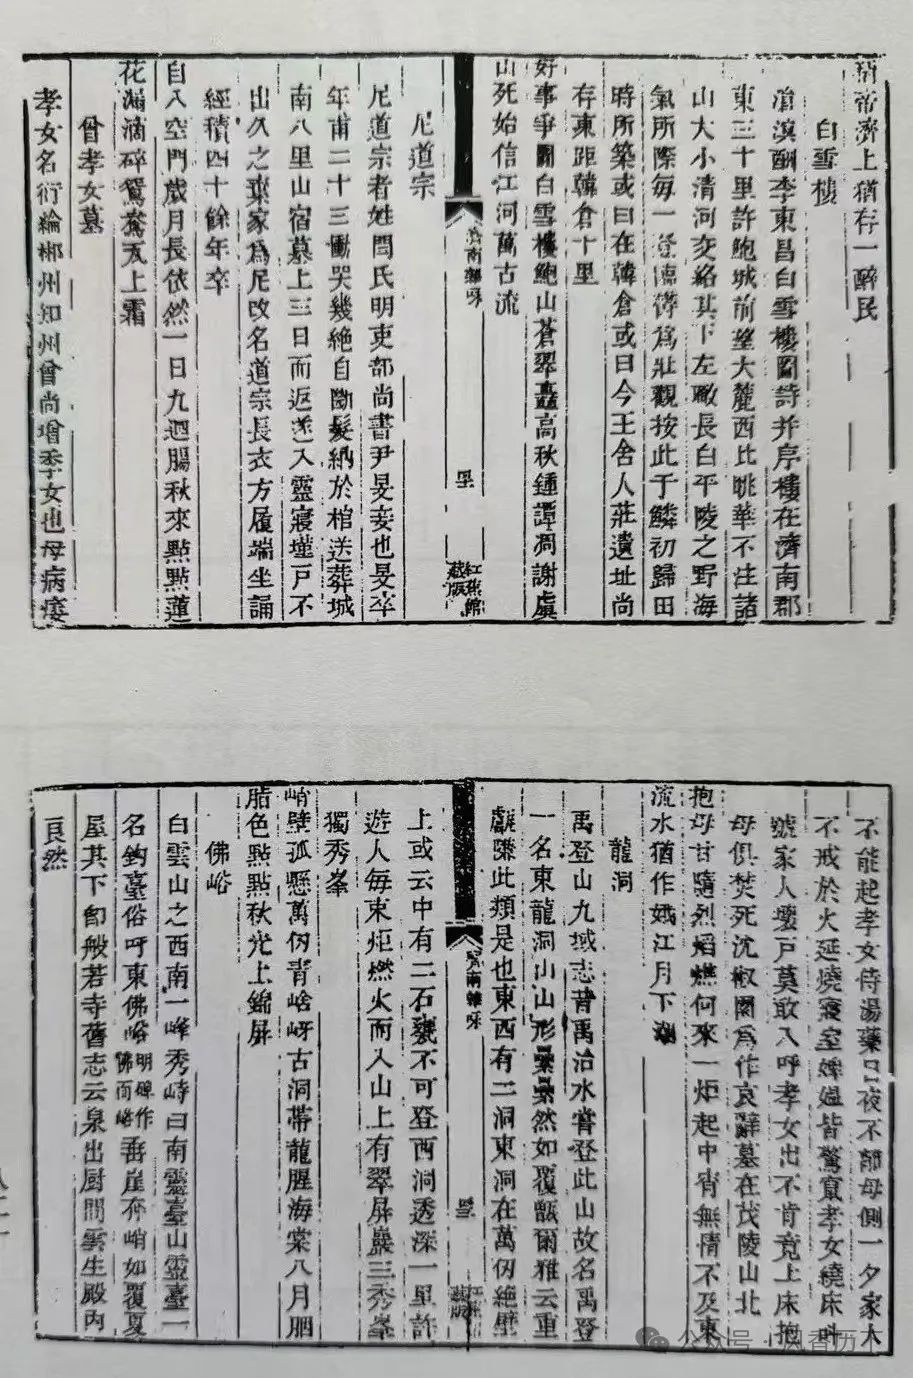 帝濟上猶存一醉民
白雪樓
滄溟酬李東昌白雪樓圖詩并序樓在濟南郡
東三十里許鮑城前望大麓西北眺華不注諸
山大小清河交絡其下左瞰長白平陵之野海
氣所際每一登臨鬱為壯觀按此于鱗初歸田
時所築或曰在韓倉或曰今王舍人莊遺址尚
存東距韓倉十里
好事爭圖白雪樓鮑山蒼翠矗高秋鍾譚凋謝虞
山死始信江河萬古流
濟南雜咏
紅蕉館
藏版
尼道宗
尼道宗者姓閆氏明吏部尚書尹旻妾也旻卒
年甫二十三慟哭幾絕自斷髮納於棺送葬城
南八里山宿墓上三日而返遂入靈寢墐戸不
出久之棄家為尼改名道宗長衣方履端坐誦
經積四十餘年卒
自入空門歲月長依然一日九迴腸秋來點點蓮
花漏滴碎鴛鴦瓦上霜
曾孝女墓
孝女名衍綸郴州知州曾尚增季女也母病痿
不能起孝女侍湯藥日夜不離母側一夕家人
不戒於火延燒寢室婢媼皆驚竄孝女繞床呌
號家人壞戸莫敢入呼孝女出不肯竟上床抱
母俱焚死沈椒園為作哀辭墓在茂陵山北
抱母甘隨烈燄燋何來一炬起中宵無情不及東
流水猶作娥江月下潮
龍洞
禹登山九域志昔禹治水嘗登此山故名禹登
一名東龍洞山山形纍纍然如覆甑爾雅云重
甗隒此類是也東西有二洞東洞在萬仞絕壁
濟南雜咏
紅蕉館
藏版
上或云中有二石甕不可登西洞透深一里許
遊人每束炬燃火而入山上有翠屏巖三秀峯
獨秀峯
峭壁孤懸萬仞青啥岈古洞帶龍腥海棠八月胭
脂色點點秋光上錦屏
佛峪
白雲山之西南一峰秀峙曰南靈臺山靈臺一
名鈞臺俗呼東佛峪明碑作佛而峪垂崖奔峭如覆夏
屋其下卽般若寺舊志云泉出厨間雲生殿內
良然
公众号·风香历下